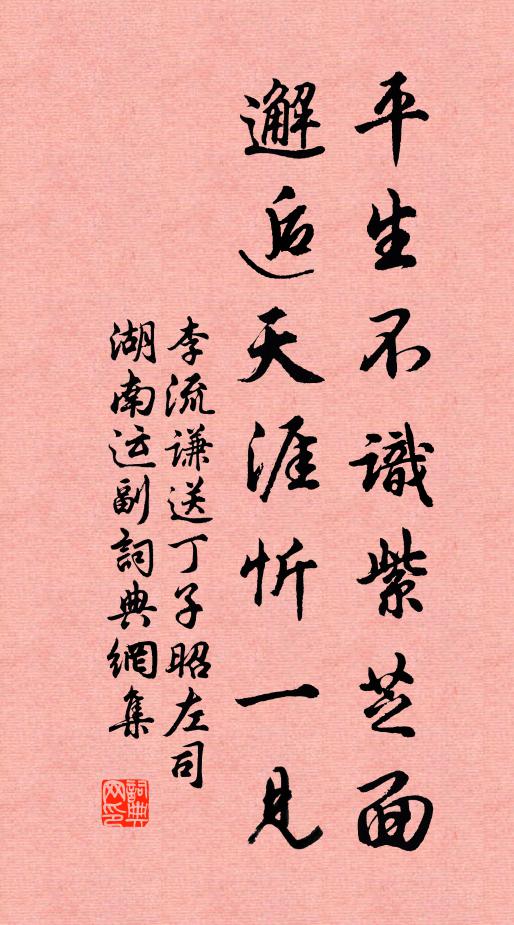 平生不識紫芝面
邂逅天涯忻一見
李流谦送丁子昭左司
湖南运副詞典網集
詞典网印